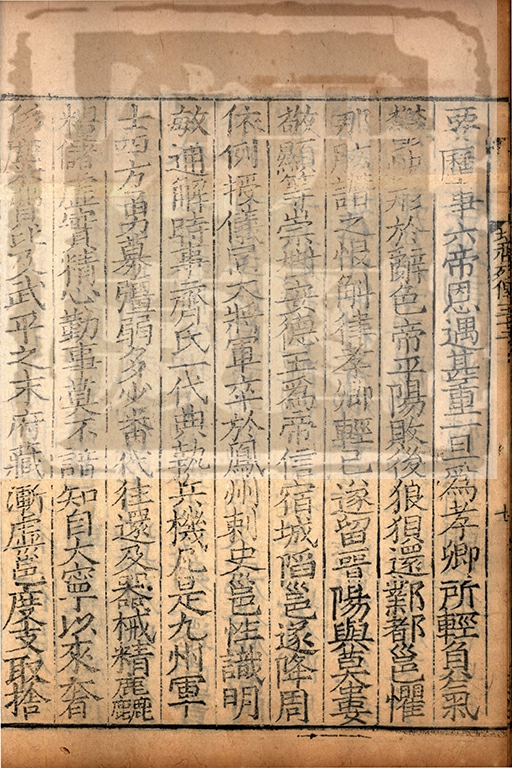 北齊列傳三十二
七
要歷事六帝恩遇甚重一旦爲孝卿所輕負氣
鬱怏形於辭色帝平陽敗後狼狽還鄴都邕懼
那肱譖之恨斛律孝卿輕己遂留晉陽與莫多婁
敬顯等崇樹安德王爲帝信宿城陷邕遂降周
依例授儀同大將軍卒於鳳州刺史邕性識明
敏通解時事齊氏一代典執兵機凡是九州軍
士四方勇募彊弱多少番代往還及器械精麤
糧儲虛實精心勤事莫不諳知自大寧以來奢
侈糜費比及武平之末府藏漸虛邕度支取捨